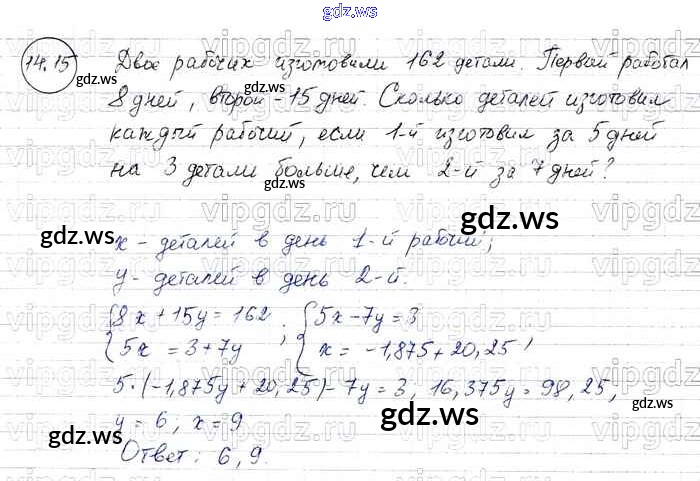 gdz.ws
14.15 Двое рабочих изготовили 162 детали. Первый работал
8 дней, второй - 15 дней. Сколько деталей изготовил
каждый рабочий, если 1-й изготовил за 5 дней
на 3 детали больше, чем 2-й за 7 дней?
x - деталей в день 1-й рабочий;
y - деталей в день 2-й.
{8x + 15y = 162 ; {5x - 7y = 3
{5x = 3 + 7y {x = -1,875 + 20,25 ,
5·(-1,875y + 20,25) - 7y = 3, 16,375y = 98,25,
y = 6, x = 9
Ответ: 6, 9.
gdz.ws
gdz.ws
gdz.ws
gdz.ws
gdz.ws
gdz.ws
gdz.ws
gdz.ws
vipgdz.ru